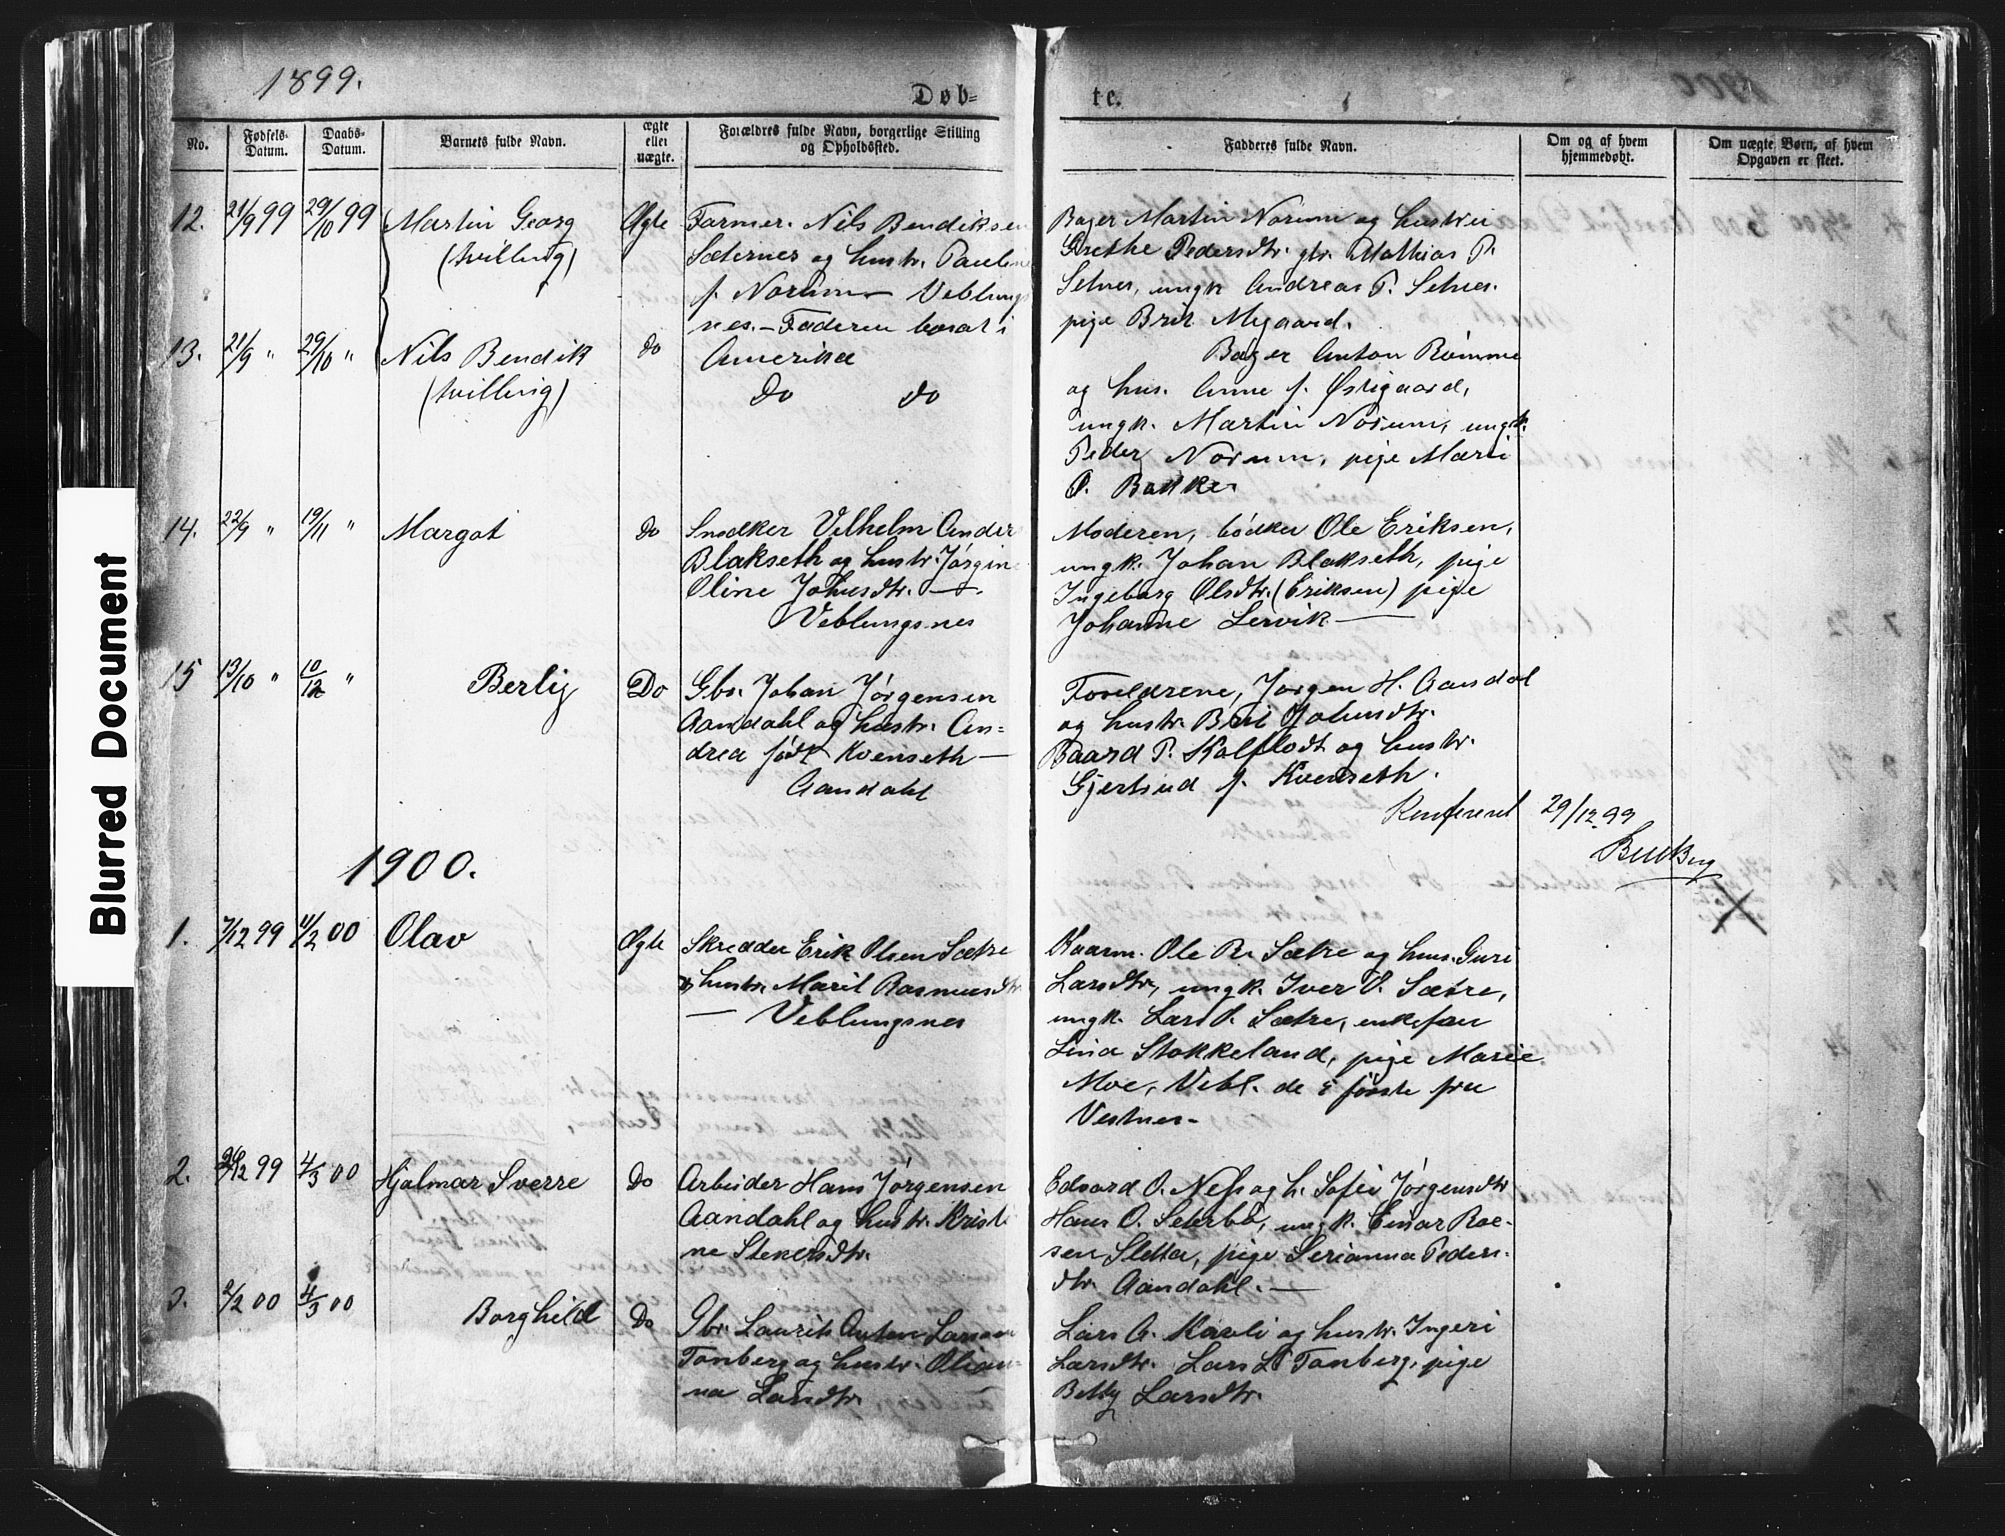 1899.
Døb-
te.
No.
Fødsels-
Datum.
Daabs-
Datum.
Barnets fulde Navn.
ægte
eller
uægte.
Forældres fulde Navn, borgerlige Stilling
og Opholdssted.
Fadderes fulde Navn.
Om og af hvem
hjemmedøbt.
Om uægte Børn, af hvem
Opgaven er skeet.
12. 21/9 99 29/10 99 Martin Georg Ægte
(tvilling)
Farmer. Nils Bendiksen
Sæternes og hustr. Pauline
f. Norum — Veblungs
nes. — Faderen bosat i
Amerika
Bager Martin Norum og hustru
Grethe Pedersdtr. gbr. Mathias P.
Setnes, ungk Andreas P. Setnes.
pige Brit Mygaard.
13. 21/9 " 29/10 " Nils Bendik do
(tvilling)
do do
Bager Anton Rømme
og hus. Anne f. Østigaard,
ungk. Martin Norum, ungk.
Peder Norum, pige Marie
O. Bakke
14. 22/9 " 19/11 " Margot do
Snedker Vilhelm Anders
Blakseth og hustr. Jørgine
Oline Johsdtr. —
Veblungsnes
Moderen, bødker Ole Eriksen,
ungk. Johan Blakseth, pige
Ingeborg Olsdtr. (Eriksen) pige
Johanne Lervik —
15 13/10 " 10/12 " Berly Do
Gbr. Johan Jørgensen
Aandahl og hustr. An=
drea født Kvenseth —
Aandahl
Forældrene, Jørgen H. Aandal
og hustr. Brit Johnsdtr.
Baard P. Kalflodt og hustr.
Gjertrud f. Kvenseth.
Konfereret 29/12 99
1900.
1. 7/12 99 11/2 00 Olav Ægte
Skrædder Erik Olsen Sætre
og hustr. Marit Rasmusdtr.
— Veblungsnes
Kaarm. Ole R. Sætre og hus. Guri
Larsdtr, ungk. Iver O. Sætre,
ungk. Lars O. Sætre, enkefru
Lina Stokkeland, pige Marie
Moe, Vebl. de 5 første fra
Vestnes -
2. 29/12 99 4/3 00 Hjalmar Sverre Do
Arbeider Hans Jørgensen
Aandahl og hustr. Kristi
ne Steversdtr.
Edvard O. Næss og h. Sofie Jørgensdtr
Hans O. Seterbø, ungk. Einar Roe-
sen Sletta, pige Serianna Peders-
dtr. Aandahl. —
3. 2/2 00 4/3 00 Borghild Do
Gbr. Laurits Anton Larsen
Tonberg og hustr. Olian-
na Larsdtr.
Lars A. Kavli og hustr. Ingeri
Larsdtr. Lars L. Tonberg, pige
Betty Larsdtr.
Blurred Document